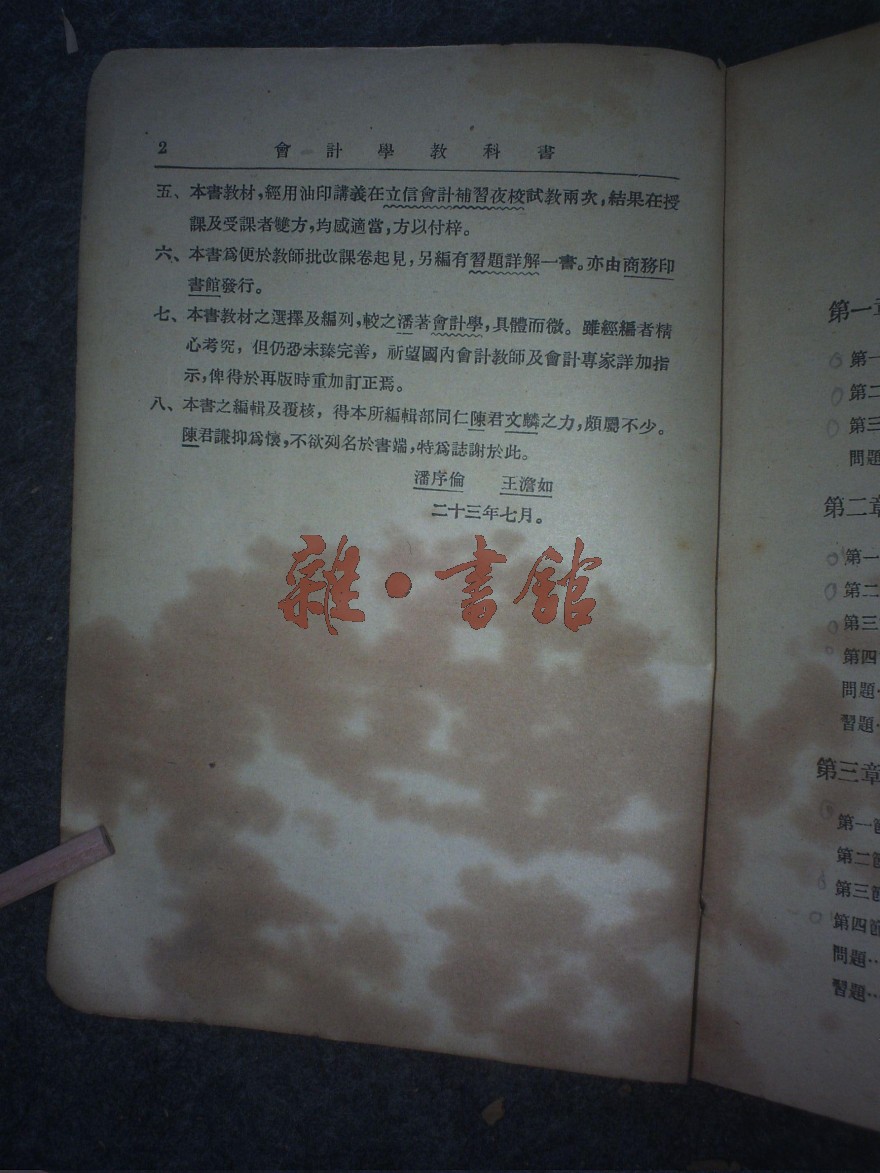 2 會計學教科書
五、本書教材，經用油印講義在立信會計補習夜校試教兩次，結果在授
課及受課者雙方，均感適當，方以付梓。
六、本書爲便於教師批改課卷起見，另編有習題詳解一書。亦由商務印
書館發行。
七、本書教材之選擇及編列，較之潘著會計學，具體而微。雖經編者精
心考究，但仍恐未臻完善，祈望國內會計教師及會計專家詳加指
示，俾得於再版時重加訂正焉。
八、本書之編輯及覆核，得本所編輯部同仁陳君文麟之力，頗屬不少。
陳君謙抑爲懷，不欲列名於書端，特爲誌謝於此。
潘序倫 王澹如
二十三年七月。
雜·書館
第一章
第一
第二
第三
問題
第二章
第一
第二
第三
第四
問題
習題
第三章
第一節
第二節
第三節
第四節
問題…
習題…